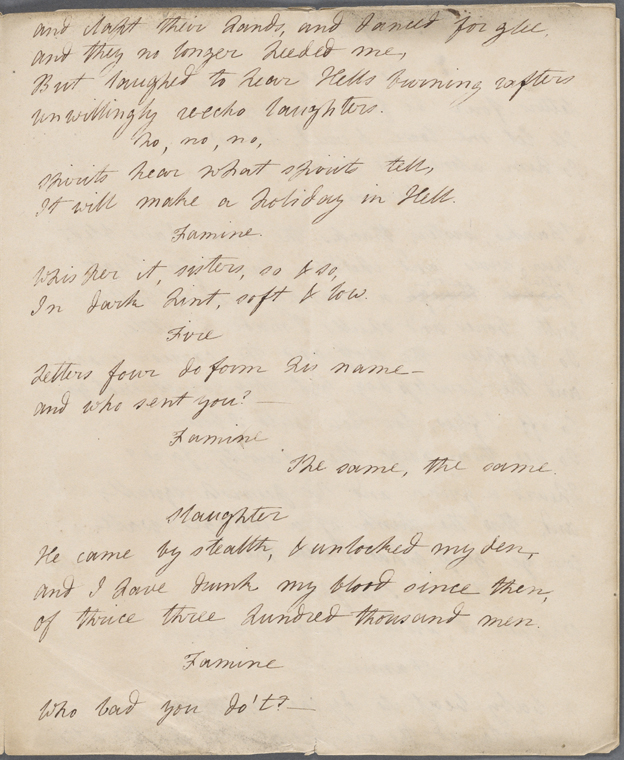 and clapt their hands, and danced for glee,
and they no longer heeded me,
But laughed to hear Hells burning rafters
unwillingly reecho laughters.
No, no, no,
spirits hear what spirits tell,
It will make a holiday in Hell.
Famine.
Whisper it, sisters, so & so,
In dark hint, soft & low.
Fire
Letters four do form his name—
and who sent you?—
Famine
The same, the same.
Slaughter
He came by stealth, & unlocked my den,
and I have drunk my blood since then,
of thrice three hundred thousand men.
Famine
Who bad you do't?—